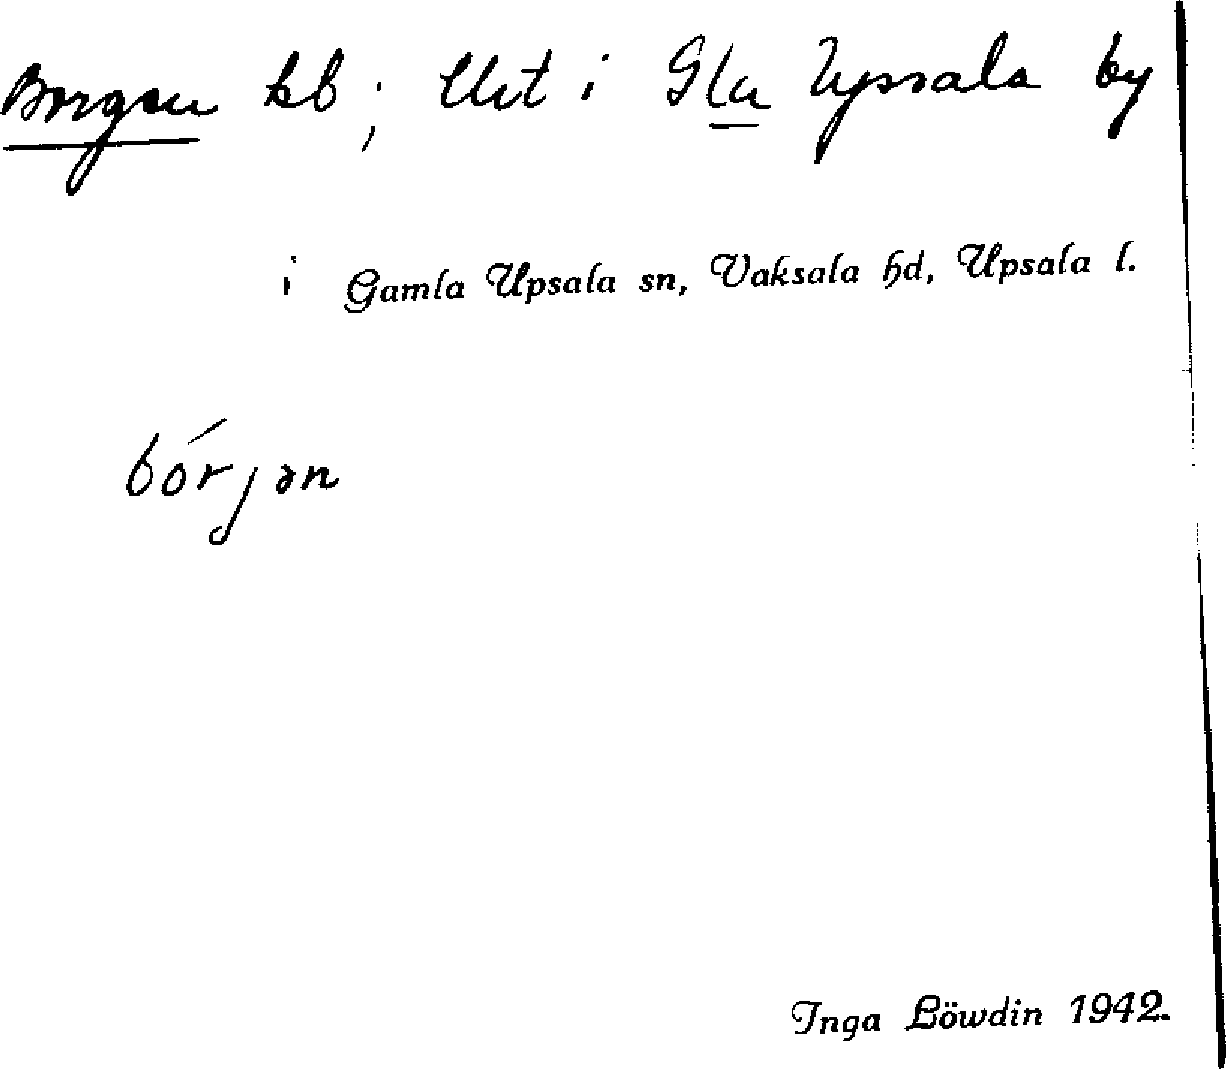 Borgen kb; Urt i Gla Uppsala by
i Gamla Upsala sn, Vaksala hd, Upsala l.
bórjən
Inga Löwdin 1942.